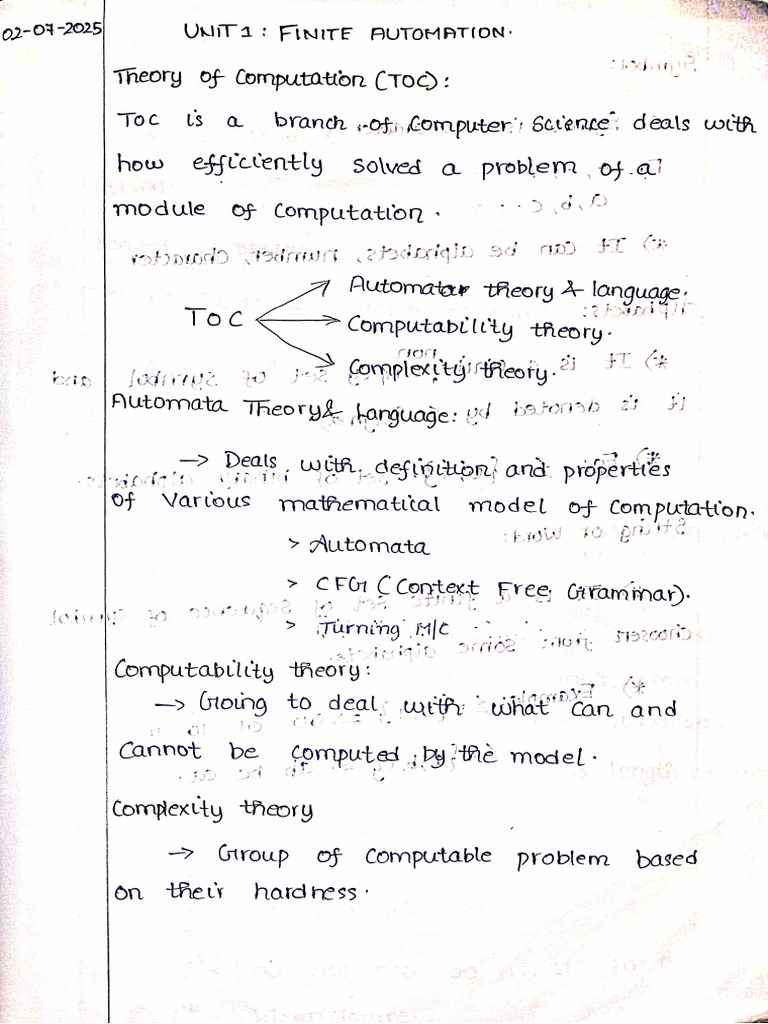 02-07-2025
UNIT 1 : FINITE AUTOMATION.
Theory of Computation (TOC) :
TOC is a branch of Computer Science deals with
how efficiently solved a problem of a
module of Computation.
TOC
Automata theory & language.
Computability theory.
Complexity theory.
Automata Theory & Language :
→ Deals with definition and properties
of various mathematical model of Computation.
> Automata
> CFG (Context Free Grammar).
> Turning M/C
Computability theory :
→ Going to deal with what can and
Cannot be computed by the model.
Complexity theory
→ Group of Computable problem based
on their hardness.